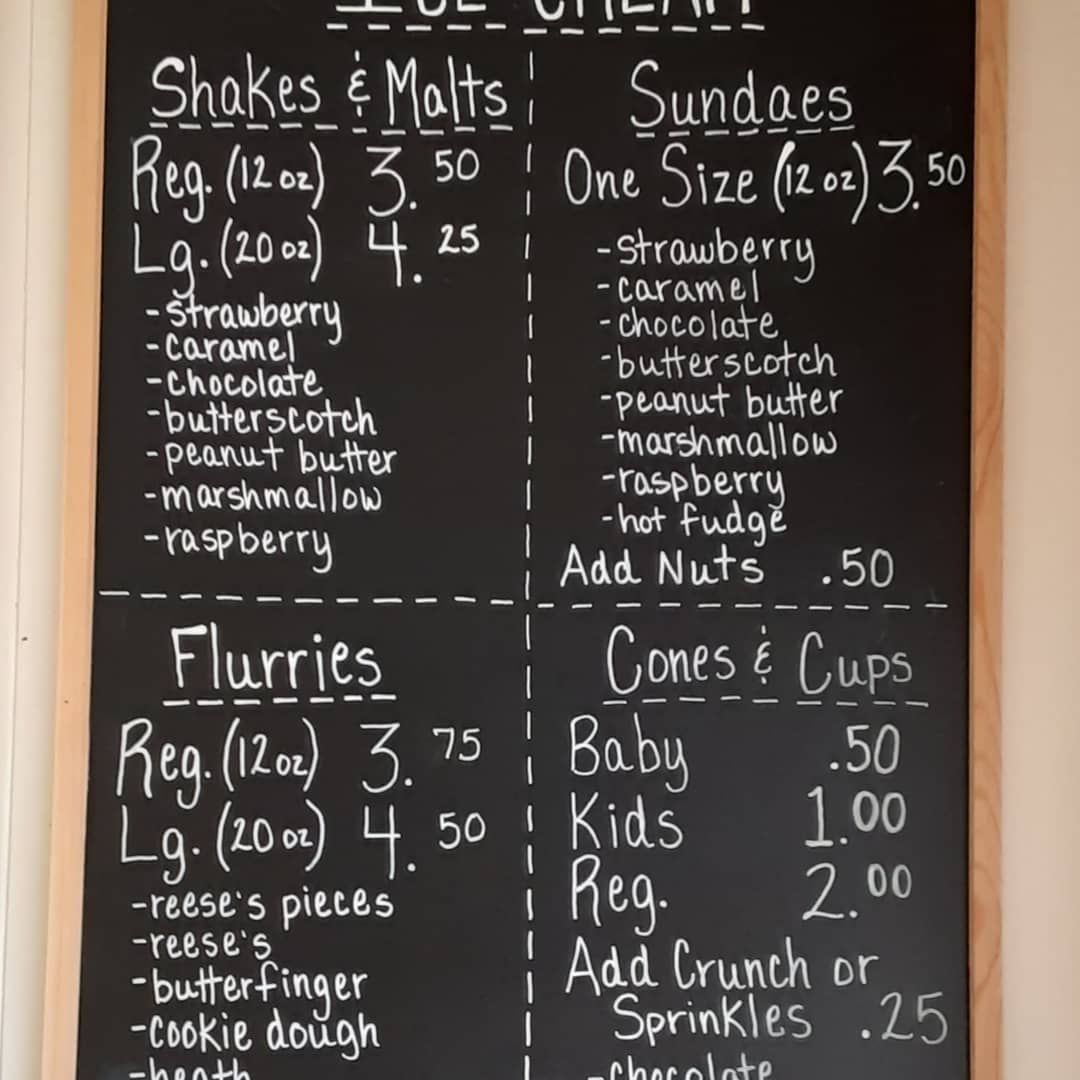 ICE CREAM
Shakes & Malts
Reg. (12 oz) 3.50
Lg. (20 oz) 4.25
-strawberry
-caramel
-chocolate
-butterscotch
-peanut butter
-marshmallow
-raspberry
Sundaes
One Size (12 oz) 3.50
-strawberry
-caramel
-chocolate
-butterscotch
-peanut butter
-marshmallow
-raspberry
-hot fudge
Add Nuts .50
Flurries
Reg. (12 oz) 3.75
Lg. (20 oz) 4.50
-reese's pieces
-reese's
-butterfinger
-cookie dough
-heath
Cones & Cups
Baby .50
Kids 1.00
Reg. 2.00
Add Crunch or
Sprinkles .25
-chocolate